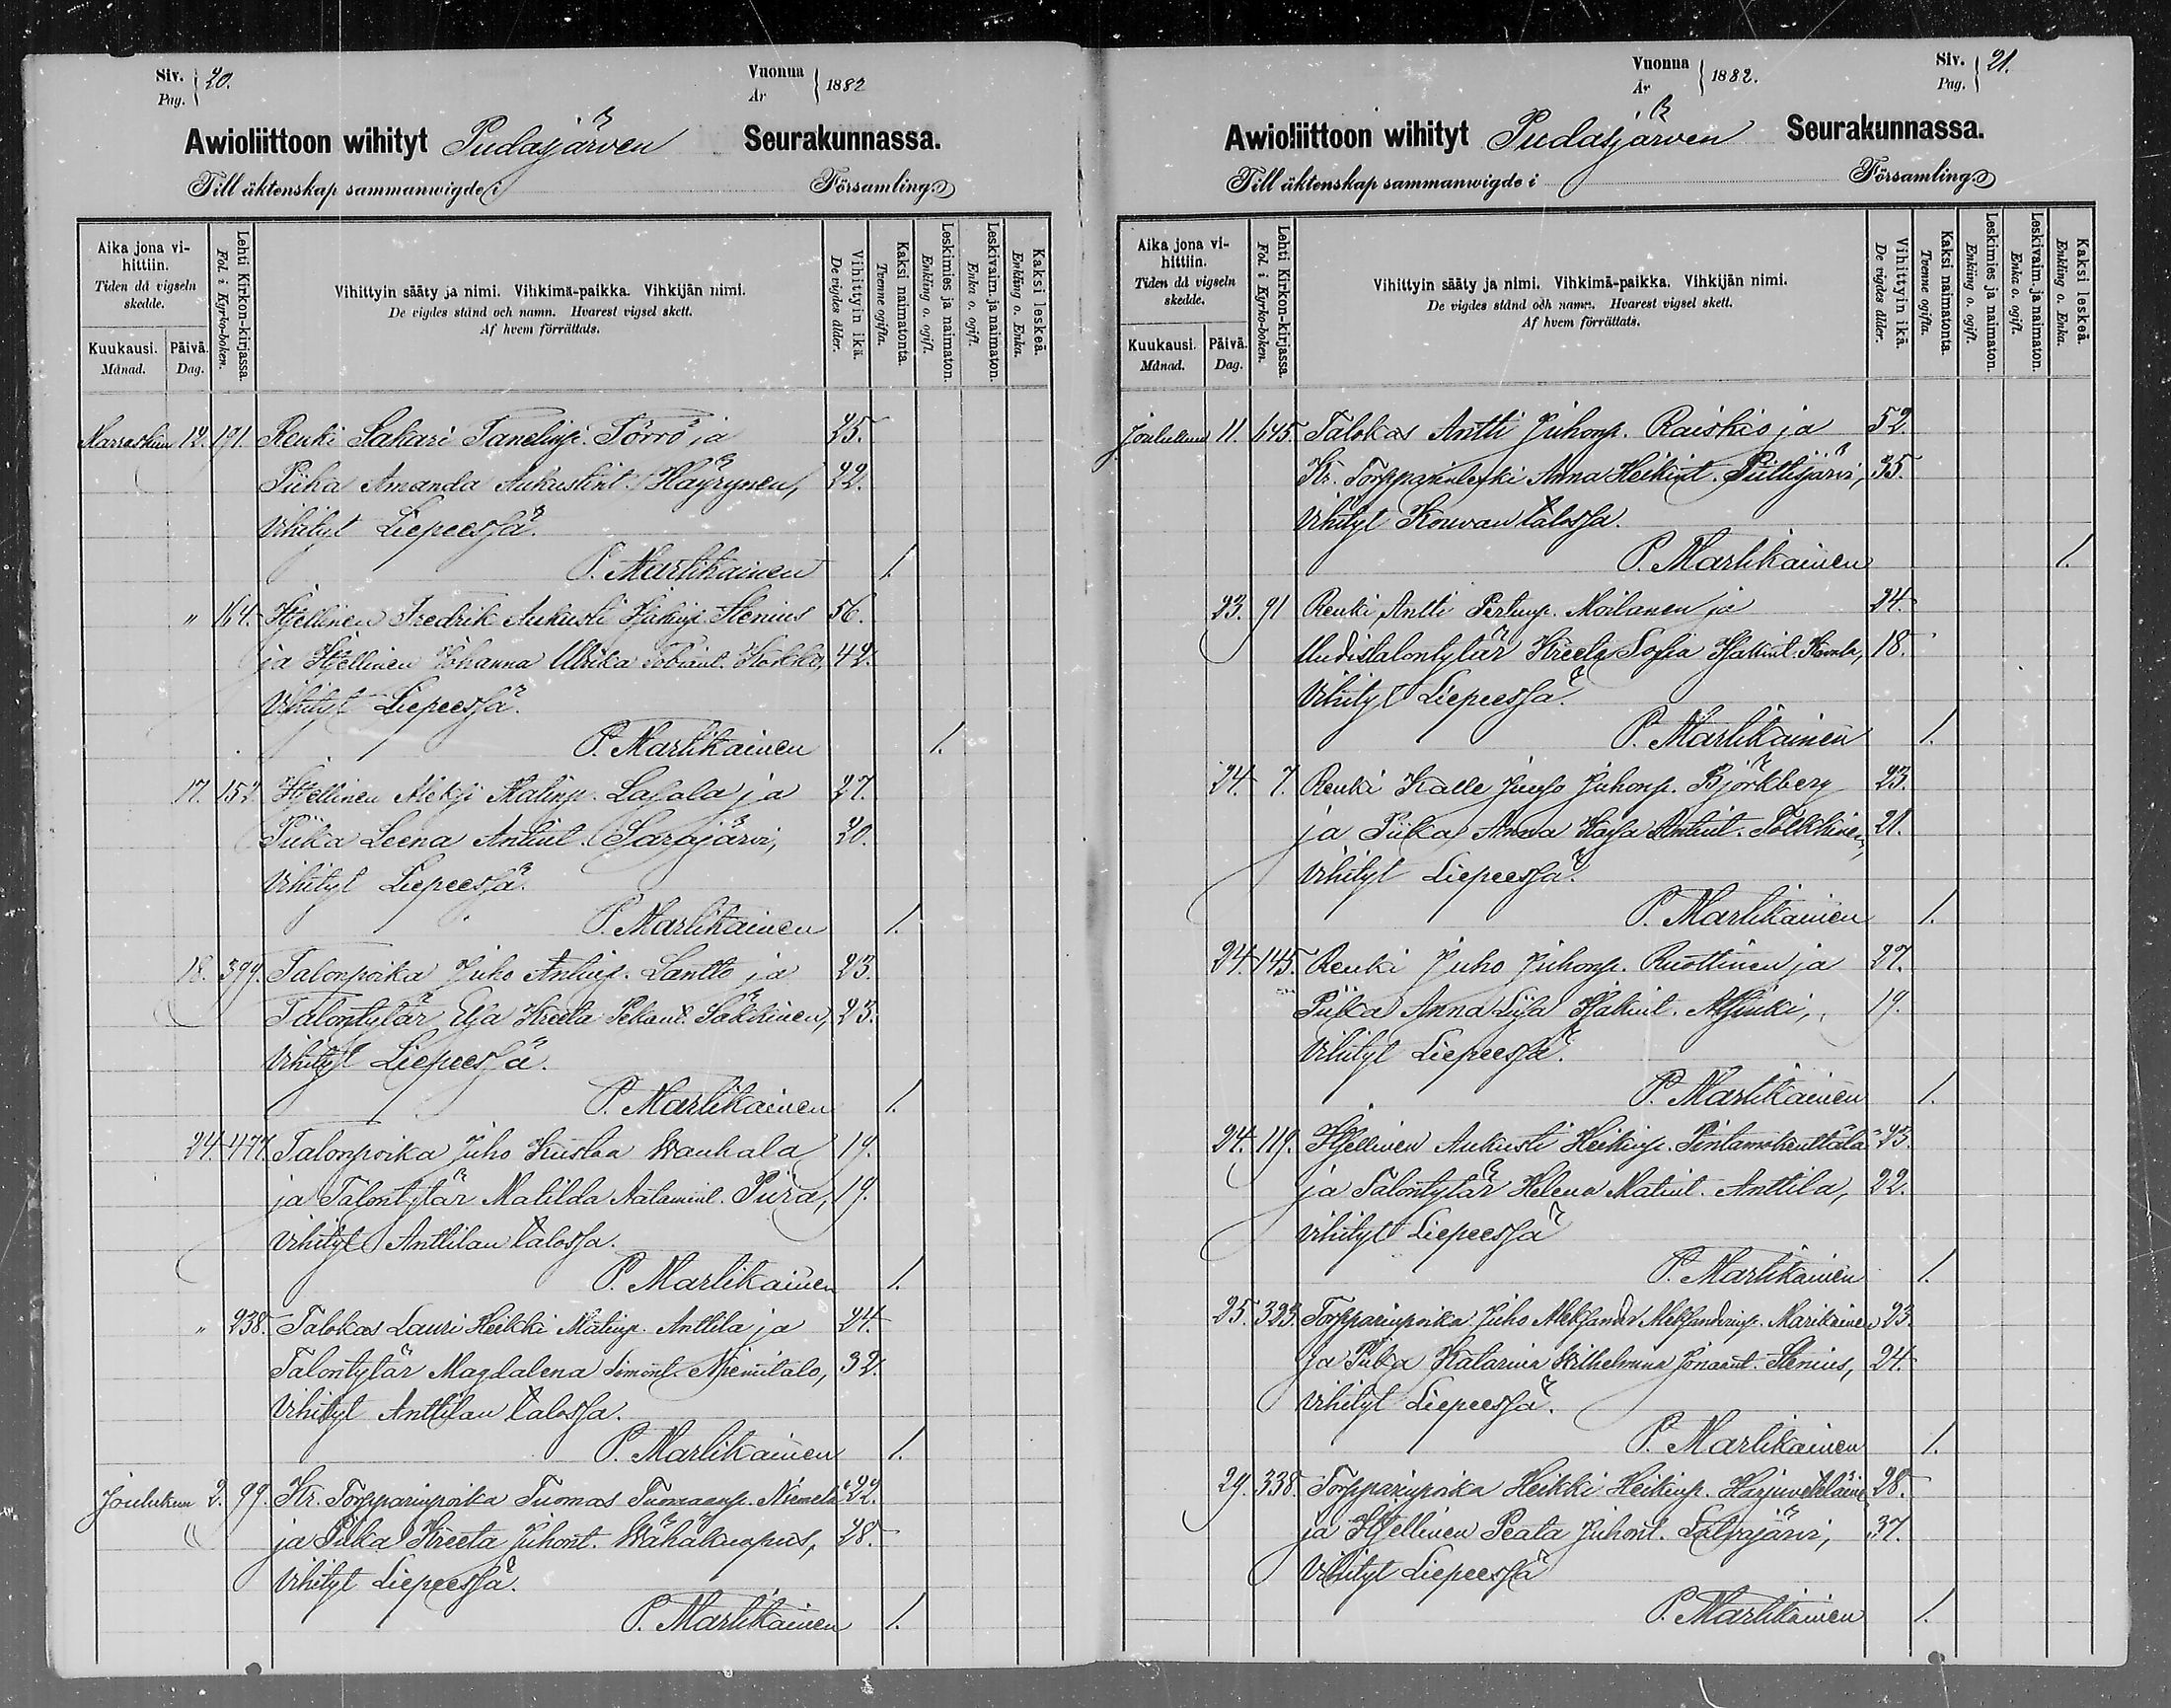 Siv. 20.
Pag.
Vuonna 1882
År
Awioliittoon wihityt Pudasjärven Seurakunnassa.
Till äktenskap sammanwigde i Församling.
Aika jona vi-
hittiin.
Tiden då vigseln
skedde.
Kuukausi. Månad.
Päivä. Dag.
Lehti Kirkon-kirjassa.
Fol. i Kyrko-boken.
Vihittyin sääty ja nimi. Vihkimä-paikka. Vihkijän nimi.
De vigdes stånd och namn. Hvarest vigsel skett.
Af hvem förrättats.
Vihittyin ikä.
De vigdes ålder.
Kaksi naimatonta.
Tvenne ogifta.
Leskimies ja naimaton.
Enkling o. ogift.
Leskivaim. ja naimaton.
Enka o. ogift.
Kaksi leskeä.
Enkling o. Enka.
Marraskuu 12. 191. Renki Sakari Tanelinp. Törrö ja 25.
Piika Amanda Aukustint. Häyrynen, 22.
Vihityt Liepeessä.
P. Martikainen 1.
" 164. Itsellinen Fredrik Aukusti Stenius 56.
ja Itsellinen Johanna Ulrika Kokko, 42.
Vihityt Liepeessä.
P. Martikainen 1.
17. 152. Itsellinen Aleksi Matinp. Lasala ja 27.
Piika Leena Antint. Sarajärvi, 20.
Vihityt Liepeessä.
P. Martikainen 1.
18. 399. Talonpoika Juho Antinp. Lantto ja 23.
Talontytär Eva Kreeta Pekant. Säkkinen, 23.
Vihityt Liepeessä.
P. Martikainen 1.
24. 477. Talonpoika Juho Kustaa Wanhala 19.
ja Talontytär Matilda Aatamint. Piira, 19.
Vihityt Anttilan talossa.
P. Martikainen 1.
" 238. Talokas Lauri Heikki Matinp. Anttila ja 24.
Talontytär Magdalena Simont. Niemitalo, 32.
Vihityt Anttilan talossa.
P. Martikainen 1.
Joulukuu 2. 99. Kr. Torpparinpoika Tuomas Tuomaanp. Niemelä 22.
ja Piika Kreeta Juhont. Wähäkuopus, 28.
Vihityt Liepeessä.
P. Martikainen 1.
Vuonna 1882.
År
Siv. 21.
Pag.
Awioliittoon wihityt Pudasjärven Seurakunnassa.
Till äktenskap sammanwigde i Församling.
Aika jona vi-
hittiin.
Tiden då vigseln
skedde.
Kuukausi. Månad.
Päivä. Dag.
Lehti Kirkon-kirjassa.
Fol. i Kyrko-boken.
Vihittyin sääty ja nimi. Vihkimä-paikka. Vihkijän nimi.
De vigdes stånd och namn. Hvarest vigsel skett.
Af hvem förrättats.
Vihittyin ikä.
De vigdes ålder.
Kaksi naimatonta.
Tvenne ogifta.
Leskimies ja naimaton.
Enkling o. ogift.
Leskivaim. ja naimaton.
Enka o. ogift.
Kaksi leskeä.
Enkling o. Enka.
Joulukuu 11. 145. Talokas Antti Juhonp. Raiskio ja 52.
Kr. Torpparinleski Anna Heikint. 35.
Vihityt Kouvan talossa.
P. Martikainen 1.
23. 91 Renki Antti Pertunp. Moilanen ja 24.
Uudistalontytär Kreeta Sofia 18.
Vihityt Liepeessä.
P. Martikainen 1.
24. 7. Renki Kalle Juuso Juhonp. Björkberg 23.
ja Piika Anna Kaisa Antint. Tolkkinen, 21.
Vihityt Liepeessä.
P. Martikainen 1.
24. 145. Renki Juho Juhonp. Ruottinen ja 27.
Piika Anna Liisa 19.
Vihityt Liepeessä.
P. Martikainen 1.
24. 119. Itsellinen Aukusti Heikinp. 23.
ja Talontytär Helena Matint. Anttila, 22.
Vihityt Liepeessä
P. Martikainen 1.
25. 323. Torpparinpoika Juho Aleksander Aleksanderinp. Marikainen 23.
ja Piika Katarina Wilhelmina Joonaant. Stenius, 24.
Vihityt Liepeessä.
P. Martikainen 1.
29. 338. Torpparinpoika Heikki Heikinp. 28.
ja Itsellinen Peata Juhont. 37.
Vihityt Liepeessä
P. Martikainen 1.